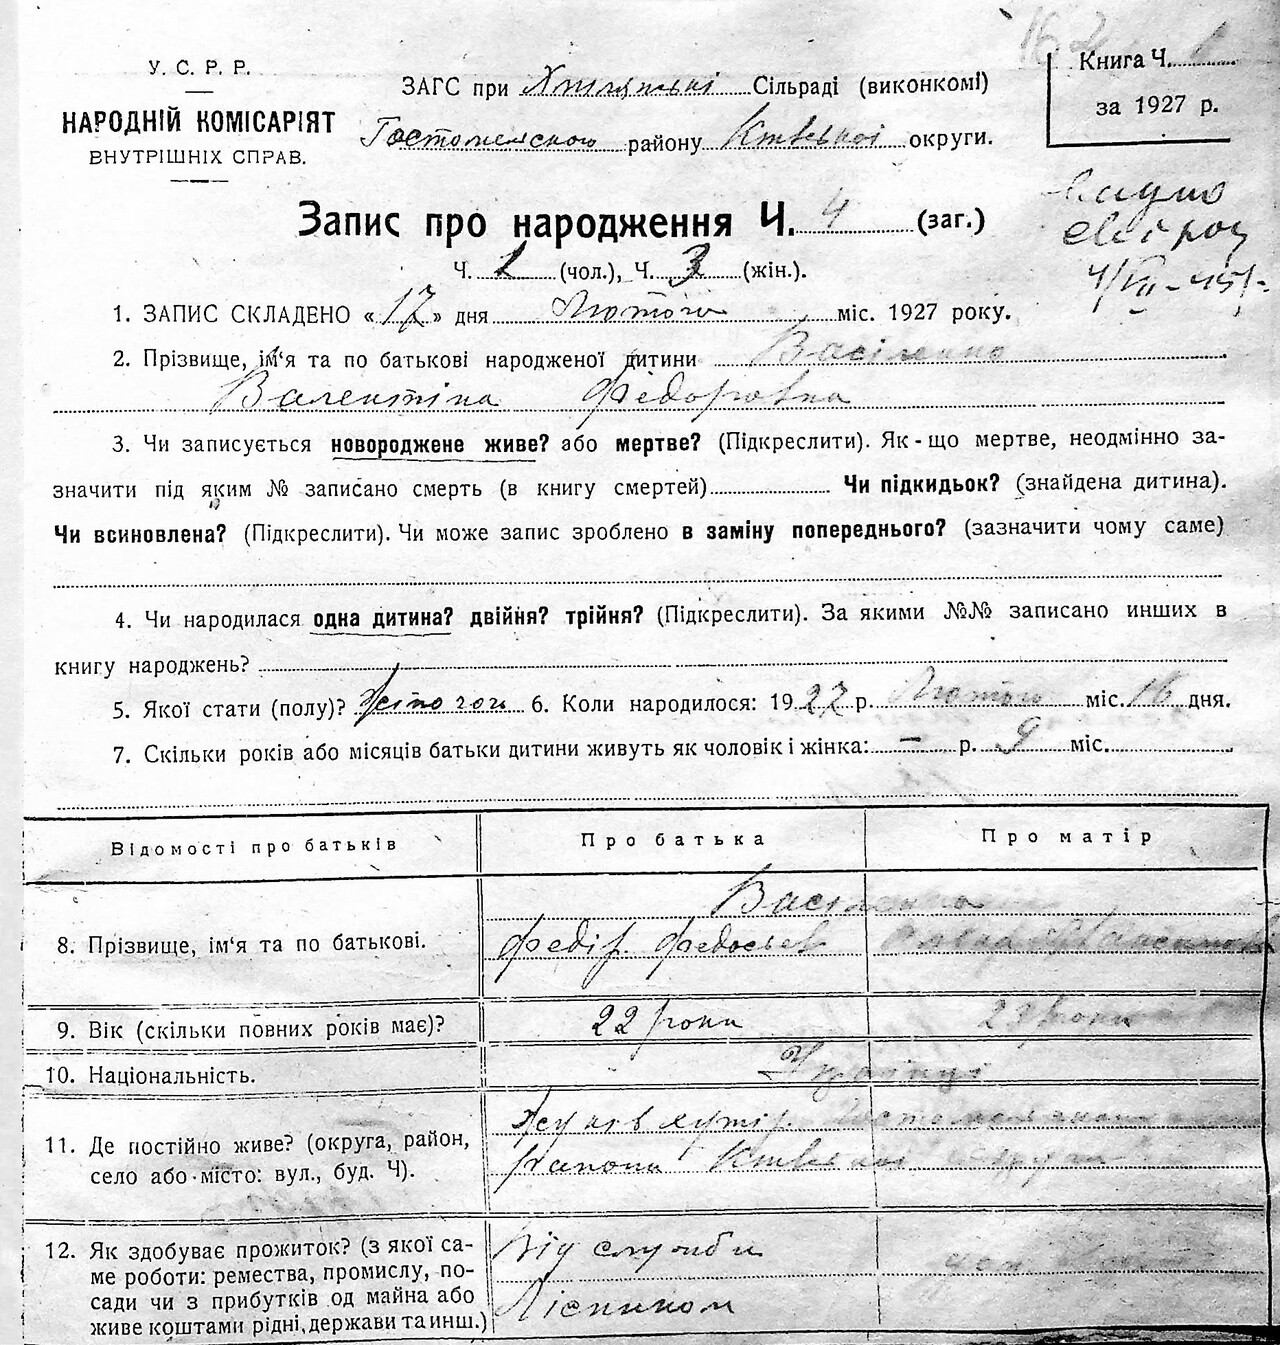 У. С. Р. Р.
НАРОДНІЙ КОМІСАРІЯТ
ВНУТРІШНІХ СПРАВ.
ЗАГС при Сільраді (виконкомі)
Гостомельского району Київської округи.
Книга Ч. 1
за 1927 р.
Запис про народження Ч. 4 (заг.)
Ч. 1 (чол.), Ч. 3 (жін.).
4/VII-45
1. ЗАПИС СКЛАДЕНО «17» дня Лютого міс. 1927 року.
2. Прізвище, ім'я та по батькові народженої дитини Васіленко
Валентіна Федоровна
3. Чи записується новороджене живе? або мертве? (Підкреслити). Як-що мертве, неодмінно за-
значити під яким № записано смерть (в книгу смертей) Чи підкидьок? (знайдена дитина).
Чи всиновлена? (Підкреслити). Чи може запис зроблено в заміну попереднього? (зазначити чому саме)
4. Чи народилася одна дитина? двійня? трійня? (Підкреслити). За якими №№ записано инших в
книгу народжень?
5. Якої стати (полу)? 6. Коли народилося: 1927 р. Лютого міс. 16 дня.
7. Скільки років або місяців батьки дитини живуть як чоловік і жінка: — р. 9 міс.
Відомості про батьків Про батька Про матір
8. Прізвище, ім'я та по батькові. Васіленко
Федір Федосьев
9. Вік (скільки повних років має)? 22 роки 23 роки
10. Національність. Українці
11. Де постійно живе? (округа, район,
село або місто: вул., буд. Ч). хутір Гостомельского
района Київської округи
12. Як здобуває прожиток? (з якої са-
ме роботи: ремества, промислу, по-
сади чи з прибутків од майна або
живе коштами рідні, держави та инш.)
Від служби
Лісником